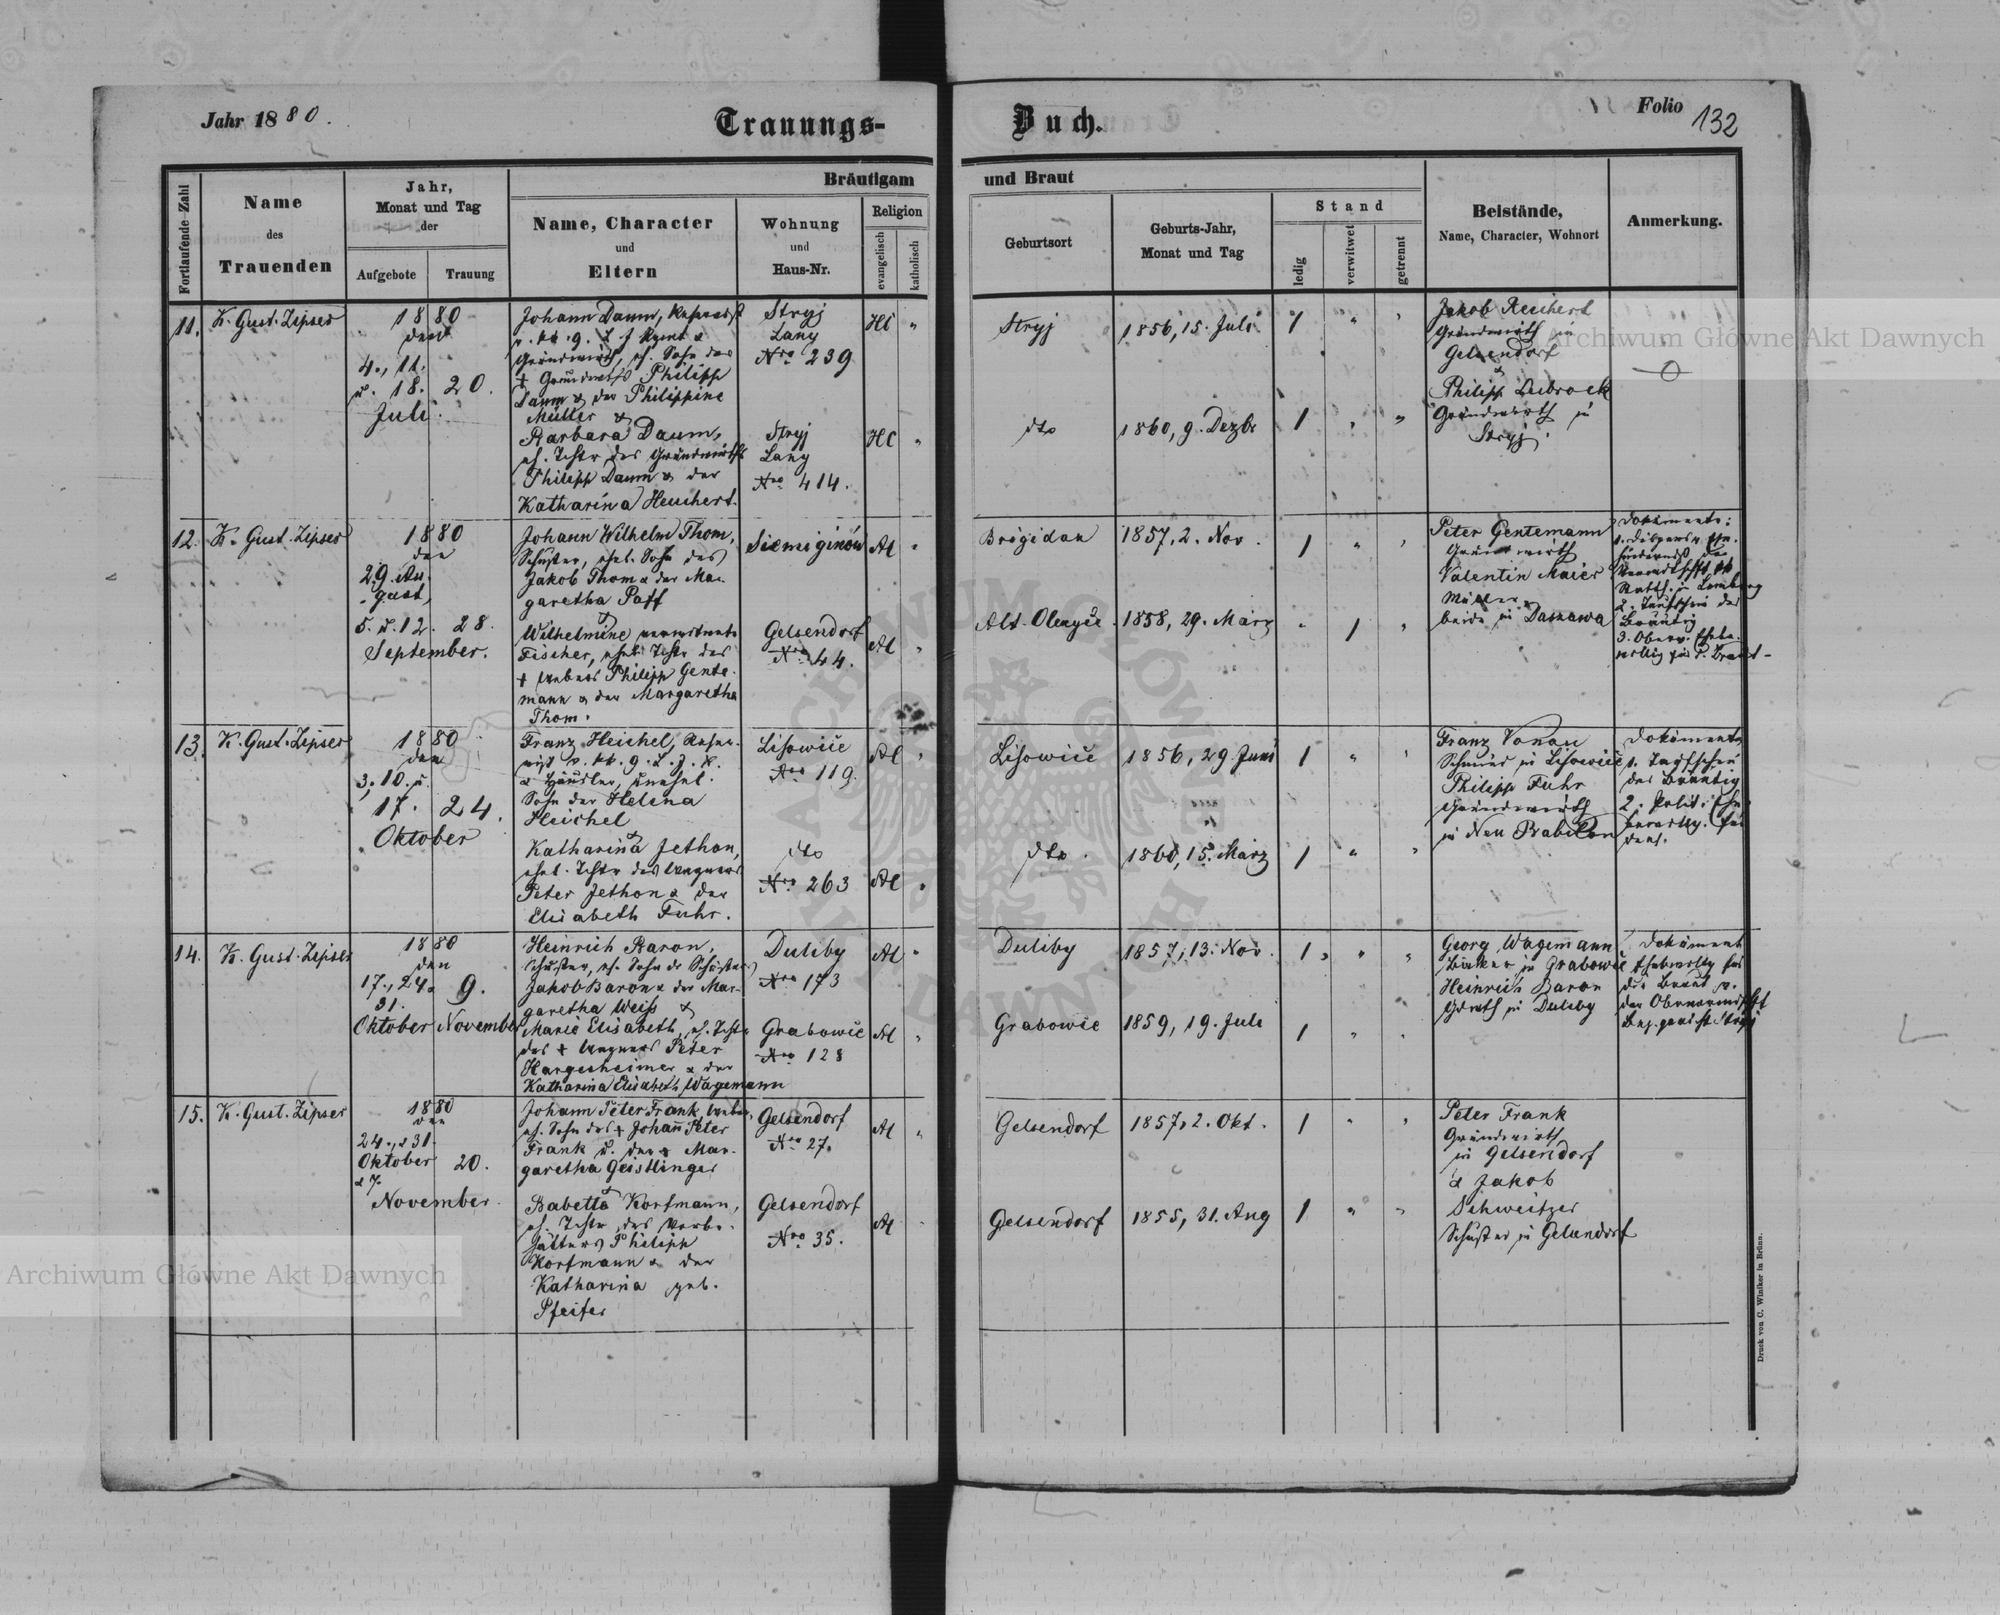 Jahr 1880.
Trauungs-
Buch.
Folio 132
Fortlaufende Zahl
Name
des
Trauenden
Jahr,
Monat und Tag
der
Aufgebote
Trauung
Bräutigam
und Braut
Name, Character
und
Eltern
Wohnung
und
Haus-Nr.
Religion
evangelisch
katholisch
Geburtsort
Geburts-Jahr,
Monat und Tag
Stand
ledig
verwitwet
getrennt
Beistände,
Name, Character, Wohnort
Anmerkung.
11.
K. Gust. Zipser
1880
den
4., 11.
u. 18. 20.
Juli.
Johann Daum,
Grundwirth, eh. Sohn des
+ Grundwirths Philipp
Daum & der Philippine
Müller &
Barbara Daum,
eh. Tchtr des Grundwirths
Philipp Daum & der
Katharina Heuchert.
Stryj
Lany
Nro 239
Stryj
Lany
Nro 414.
HC "
HC "
Stryj
1856, 15. Juli
1 " "
dto
1860, 9. Dezbr
1 " "
Jakob Reichert
Grundwirth in
Gelsendorf
&
Philipp Leibrock
Grundwirth in
Stryj.
12.
K. Gust. Zipser
1880
den
29. Au-
gust,
5. u. 12. 28.
September.
Johann Wilhelm Thom,
Schuster, ehel. Sohn des
Jakob Thom & der Mar-
garetha Paff
&
Wilhelmine verwitwete
Fischer, ehel. Tchtr des
+ Webers Philipp Gente-
mann & der Margaretha
Thom.
Siemiginów
Gelsendorf
Nro 44.
AC "
AC "
Brigidau
1857, 2. Nov.
1 " "
Alt-Olexyce.
1858, 29. März
" 1 "
Peter Gentemann
Grundwirth
Valentin Maier
Müller,
beide in Daszawa
Dokumente:
2. Taufschein des
Bräutig
3.
13.
K. Gust. Zipser
1880
den
3., 10. u.
17. 24.
Oktober
Franz Heichel, Reser-
& Händler, unehel.
Sohn der Helena
Heichel
&
Katharina Jethon,
ehel. Tchtr des Wagners
Peter Jethon & der
Elisabeth Fuhr.
Lisowice
Nro 119.
dto
Nro 263
AC "
AC "
Lisowice
1856, 29 Juni
1 " "
dto.
1860, 15. März
1 " "
Franz Vonau
Schmied in Lisowice
Philipp Fuhr
Grundwirth
in Neu Babilon
Dokumente
1. Taufschein
des Bräutig
2. Polit. Ehe-
14.
K. Gust. Zipser
1880
den
17., 24 & 9.
31.
Oktober November
Heinrich Baron,
Schuster, eh. Sohn ds Schusters
Jakob Baron & der Mar-
garetha Weiss &
Marie Elisabeth, eh. Tchtr
des + Wagners Peter
Hargesheimer & der
Katharina Elisabeth Wagemann
Duliby
Nro 173
Grabowie
Nro 128
AC "
AC "
Duliby
1857, 13. Nov.
1 " "
Grabowie
1859, 19. Juli
1 " "
Georg Wagemann
in Grabowie
Heinrich Baron
in Duliby
Dokument
15.
K. Gust. Zipser
1880
den
24., & 31.
Oktober 20.
& 7.
November
Johann Peter Frank, Weber,
eh. Sohn des + Johann Peter
Frank u. der + Mar-
garetha Geistlinger
&
Babetta Korfmann,
eh. Tchtr des Vorbe-
Philipp
Korfmann & der
Katharina geb.
Pfeifer
Gelsendorf
Nro 27.
Gelsendorf
Nro 35.
AC "
AC "
Gelsendorf
1857, 2. Okt.
1 " "
Gelsendorf
1855, 31. Aug
1 " "
Peter Frank
Grundwirth
in Gelsendorf
& Jakob
Schweitzer
Schuster in Gelsendorf
Druck von C. Winiker in Brünn.
Archiwum Główne Akt Dawnych
Archiwum Główne Akt Dawnych
ARCHIWUM GŁÓWNE AKT DAWNYCH